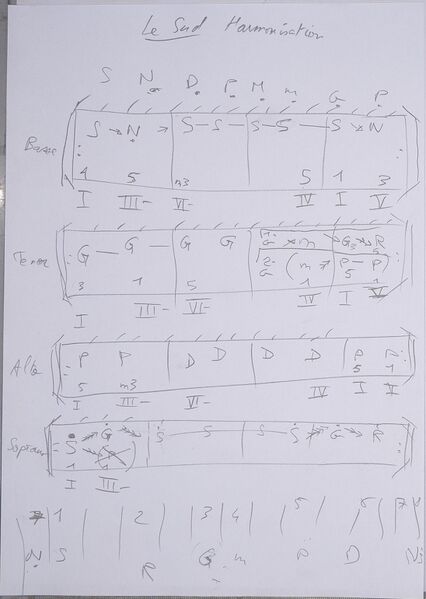 Le Sud Harmonisation
S N D P M m G P
Basse
S N S S S S S N
1 5 m3 5 1 3
I III- VI- IV I V
Tenor
G G G G 1. G m G R
2. G (m P P
3 1 5 1 5 1
I III- VI- IV I V
Alto
P P D D D D P
5 m3 5 1
I III- VI- IV I V
Soprano
S G S S S S G R
1
I III-
1 2 3 4 5 6 7
N S R G m P D N